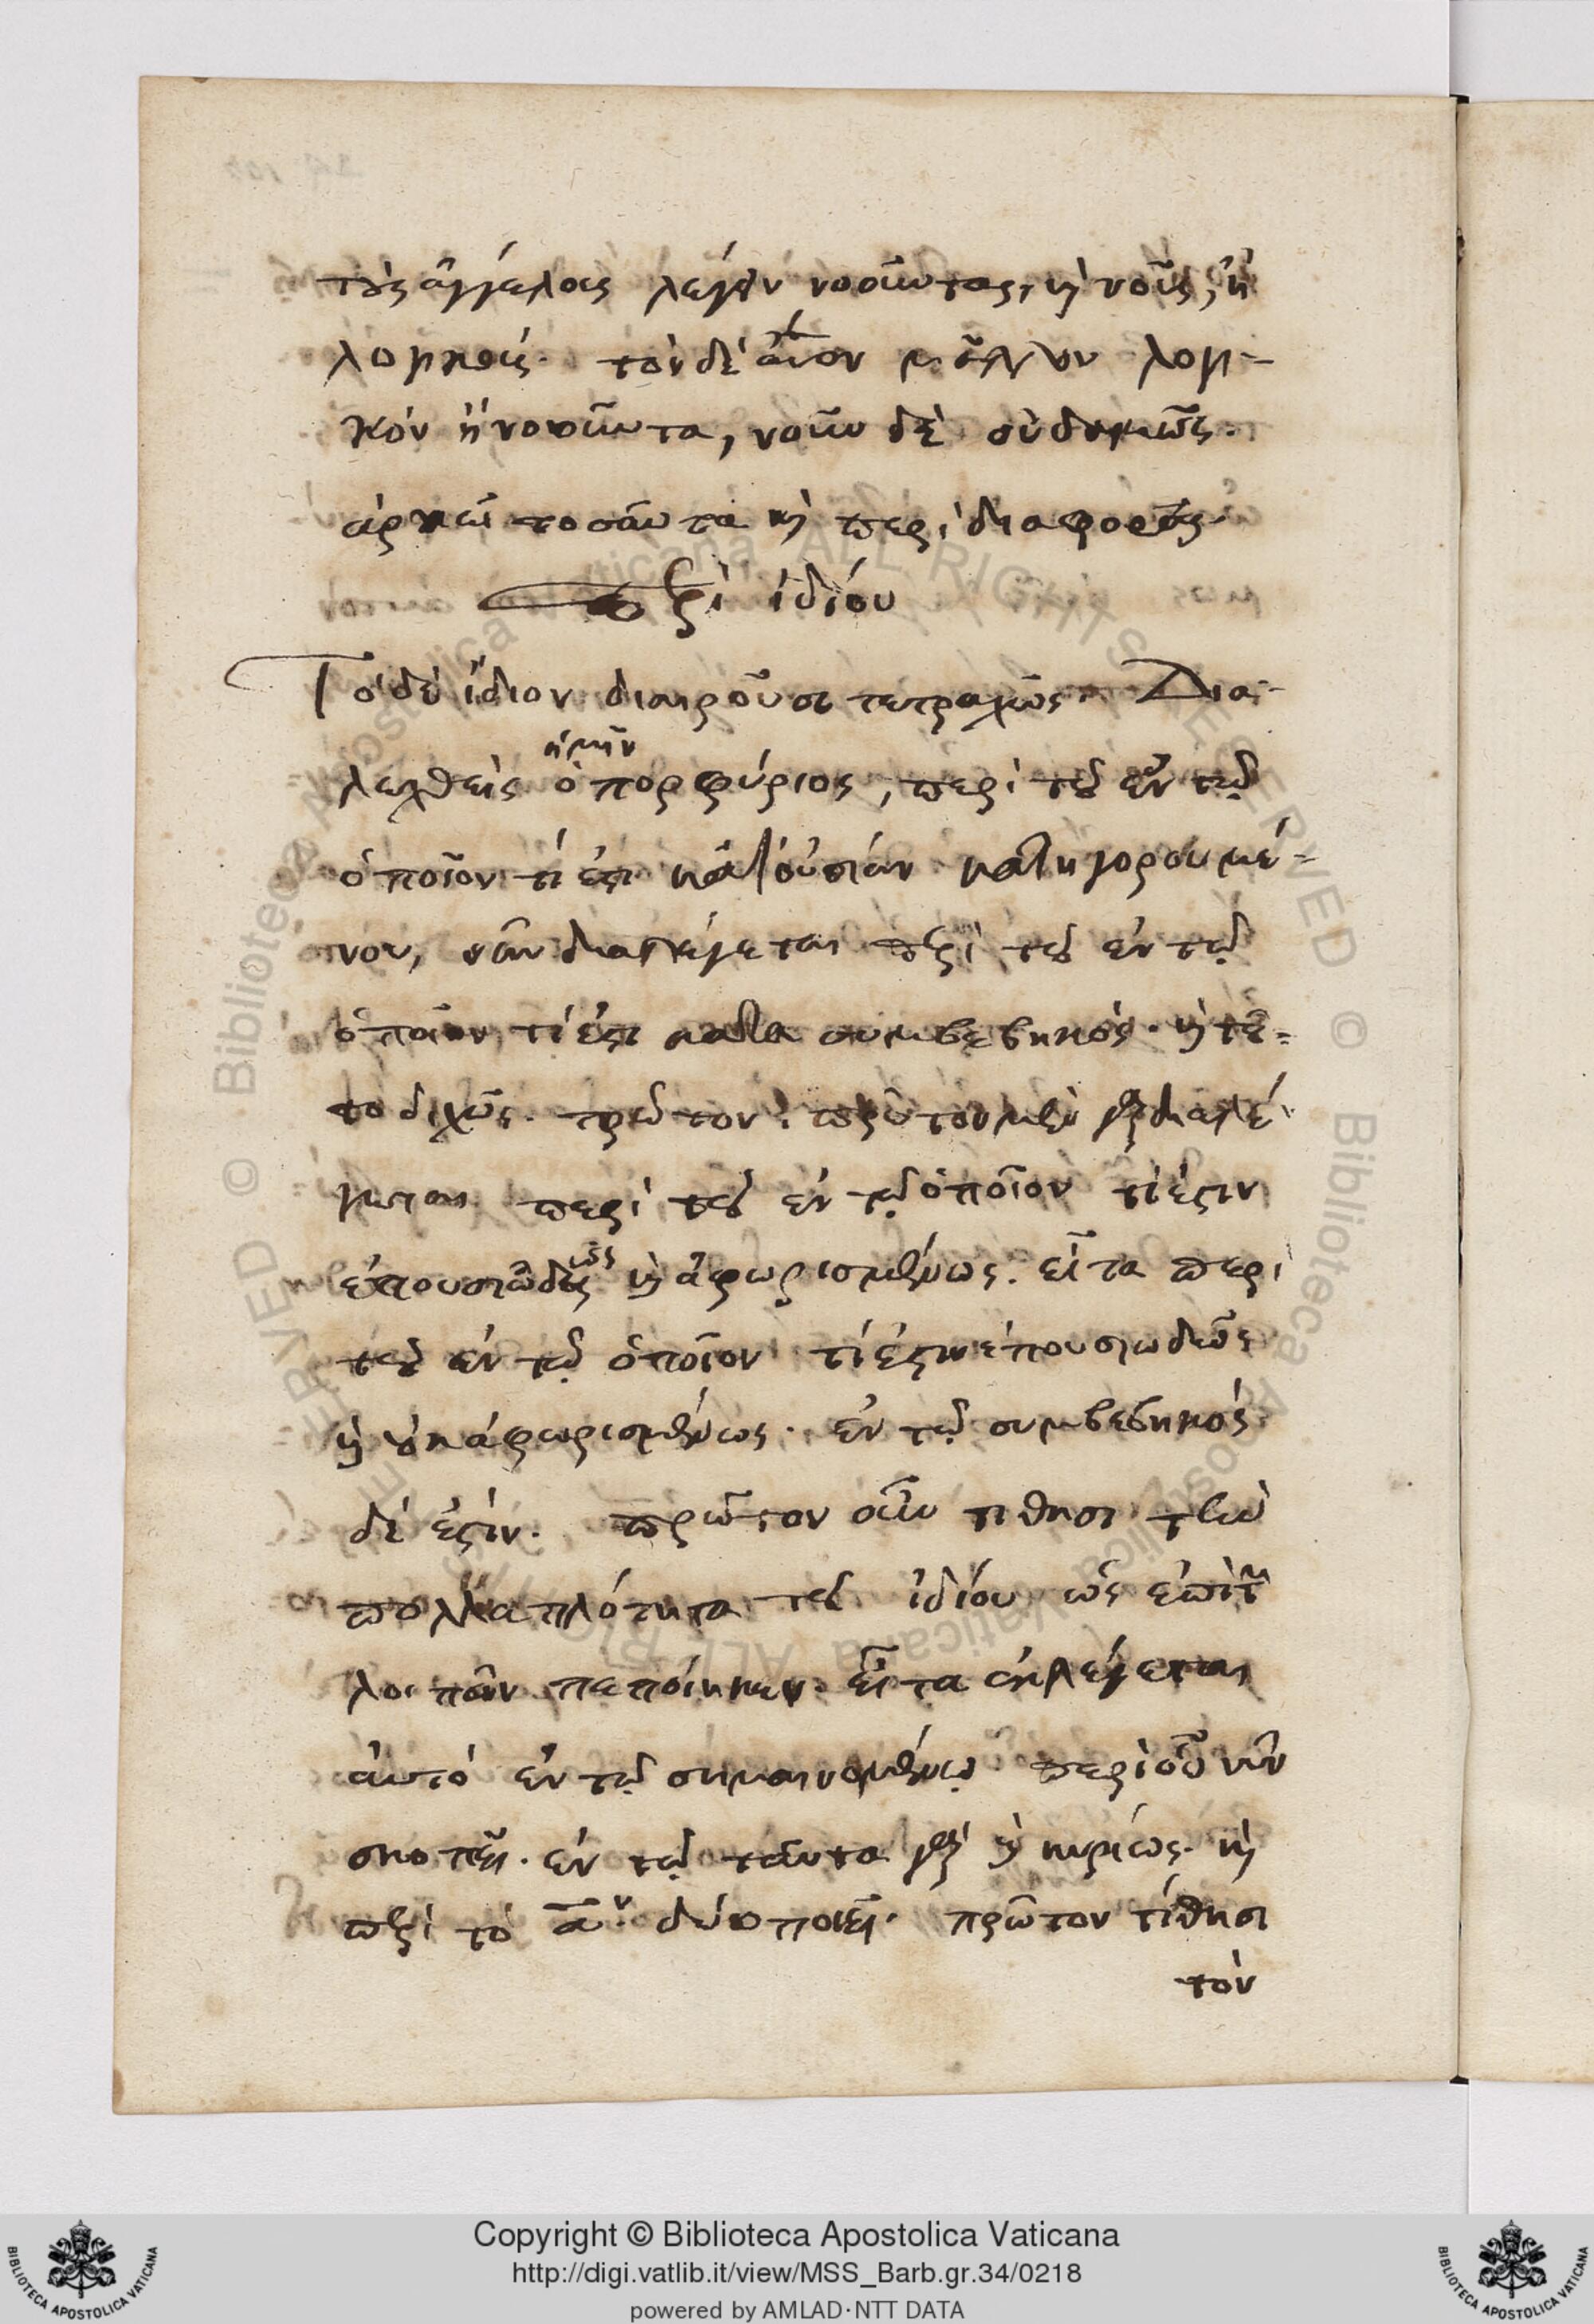 τοὺς ἀγγέλους λέγειν νοοῦντας, καὶ νοῦς, ἢ
λογικούς. τὸν δὲ ἄνον μᾶλλον λογι-
κόν ἢ νοοῦντα, νοῦν δὲ οὐδαμῶς.
ἀρκεῖ τοσαῦτα καὶ περὶ διαφορᾶς.
περὶ ἰδίου
Τὸ δὲ ἴδιον διαιροῦσι τετραχῶς Δια-
λεχθεὶς ἡμῖν ὁ πορφύριος, περὶ τοῦ ἐν τῷ
ὁποῖον τί ἐστι κατ' οὐσίαν κατηγορουμέ-
νου, νῦν διαλέγεται περὶ τοῦ ἐν τῷ
ὁποῖον τί ἐστι κατὰ συμβεβηκός. καὶ τοῦ-
το διχῶς. πρῶτον. πρῶτον μὲν γὰρ διαλέ
γεται περὶ τοῦ ἐν τῷ ὁποῖον τί ἐστιν
ἐπουσιωδῶς καὶ ἀφωρισμένως. εἶτα περὶ
τοῦ ἐν τῷ ὁποῖον τί ἐστιν ἐπουσιωδῶς
καὶ οὐκ ἀφωρισμένως. ἐν τῷ συμβεβηκός
δέ ἐστιν. πρῶτον οὖν τίθησι τὴν
πολλαπλότητα τοῦ ἰδίου ὡς ἐπὶ τῶν
λοιπῶν πεποίηκεν. εἶτα ἐκλέγεται
αὐτὸ ἐν τῷ σημαινομένῳ περὶ οὗ νῦν
σκοπεῖ. ἐν τῷ ταῦτα γὰρ καὶ κυρίως. καὶ
περὶ τὸ αον δύο ποιεῖ. πρῶτον τίθησι
τὸν